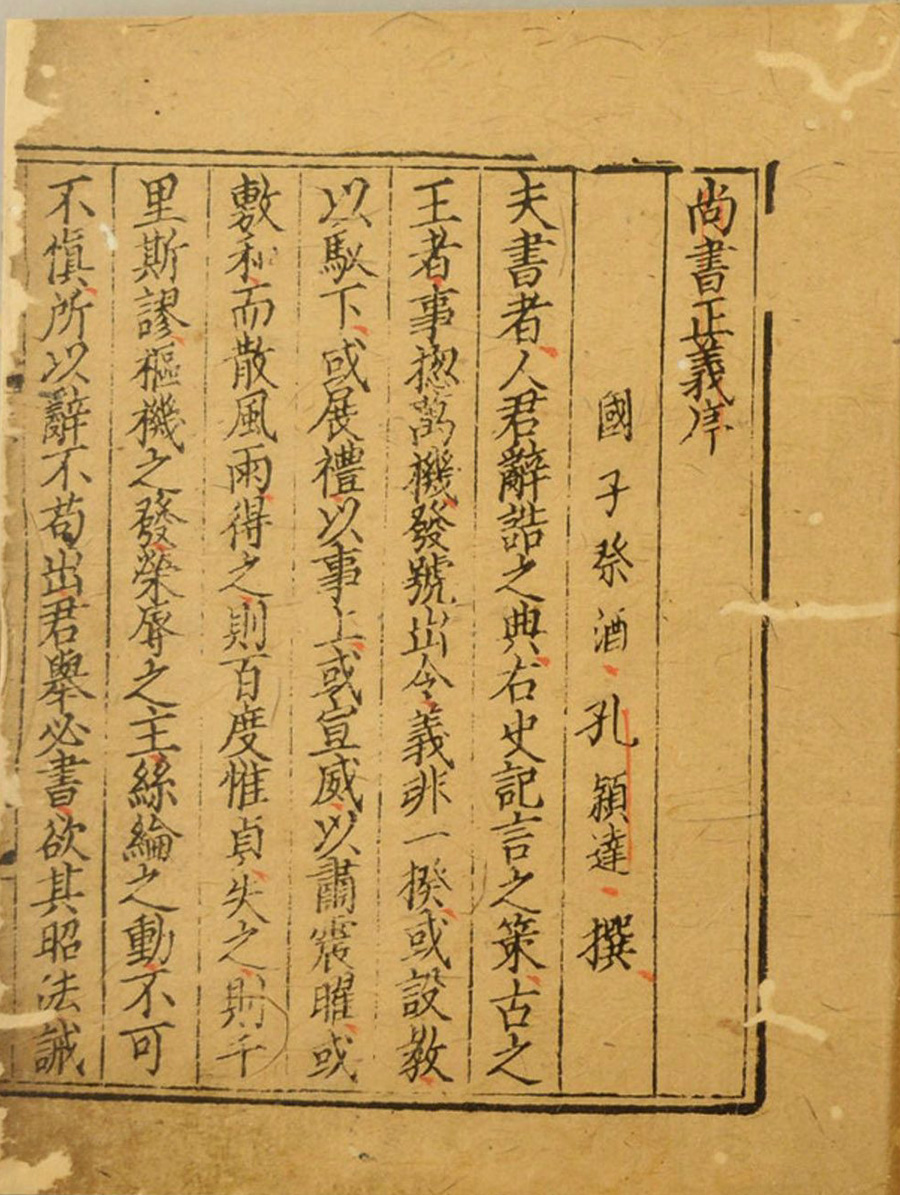 尚書正義序
國子祭酒孔穎達撰
夫書者人君辭誥之典右史記言之策古之
王者事揔萬機發號出令義非一揆或設教
以馭下或展禮以事上或宣威以肅震曜或
敷和而散風雨得之則百度惟貞失之則千
里斯謬樞機之發榮辱之主絲綸之動不可
不慎所以辭不苟出君舉必書欲其昭法誡